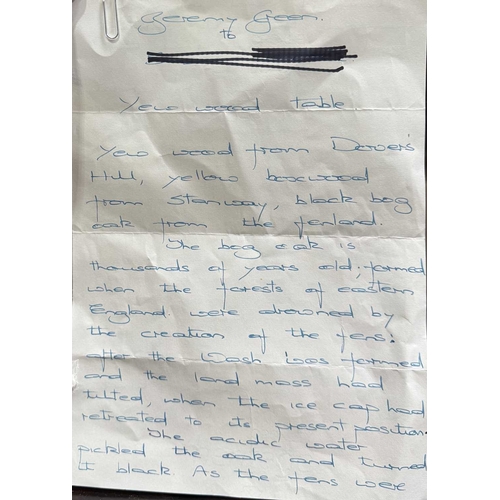 Jeremy Green.
to
Yew wood table
Yew wood from Dover's
Hill, yellow boxwood
from Stanway, black bog
oak from the fenland.
The bog oak is
thousands of years old; formed
when the forests of eastern
England were drowned by
the creation of the fens:
after the Wash was formed
and the land mass had
tilted, when the ice cap had
retreated to its present position.
The acidic water
pickled the oak and turned
it black As the fens were